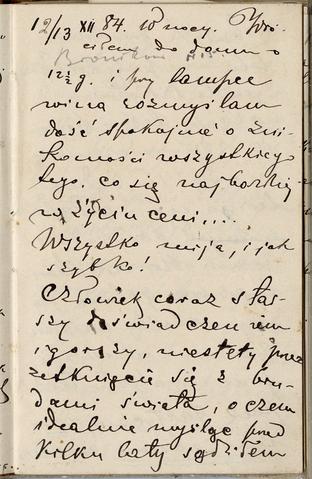 12/13 XII 84. w nocy. Wró-
ciłem do domu o
12½ g. i przy lampce
wina rozmyślam
dość spokojnie o zni-
komości wszystkiego
tego, co się najbardziej
w życiu ceni....
Wszystko mija, i jak
szybko!
Człowiek coraz star-
szy doświadczeniem
i gorszy, niestety przez
zetknięcie się z bru-
dami świata, o czem
idealnie myśląc przed
kilku laty sądziłem